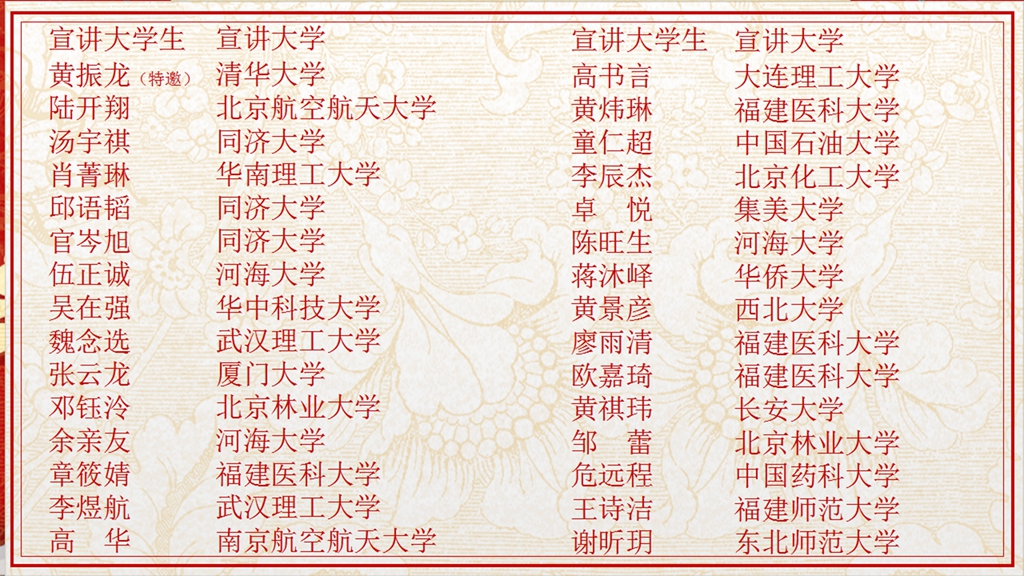 宣讲大学生 宣讲大学
黄振龙（特邀） 清华大学
陆开翔 北京航空航天大学
汤宇祺 同济大学
肖菁琳 华南理工大学
邱语韬 同济大学
官岑旭 同济大学
伍正诚 河海大学
吴在强 华中科技大学
魏念选 武汉理工大学
张云龙 厦门大学
邓钰泠 北京林业大学
余亲友 河海大学
章筱婧 福建医科大学
李煜航 武汉理工大学
高 华 南京航空航天大学
宣讲大学生 宣讲大学
高书言 大连理工大学
黄炜琳 福建医科大学
童仁超 中国石油大学
李辰杰 北京化工大学
卓 悦 集美大学
陈旺生 河海大学
蒋沐峄 华侨大学
黄景彦 西北大学
廖雨清 福建医科大学
欧嘉琦 福建医科大学
黄祺玮 长安大学
邹 蕾 北京林业大学
危远程 中国药科大学
王诗洁 福建师范大学
谢昕玥 东北师范大学